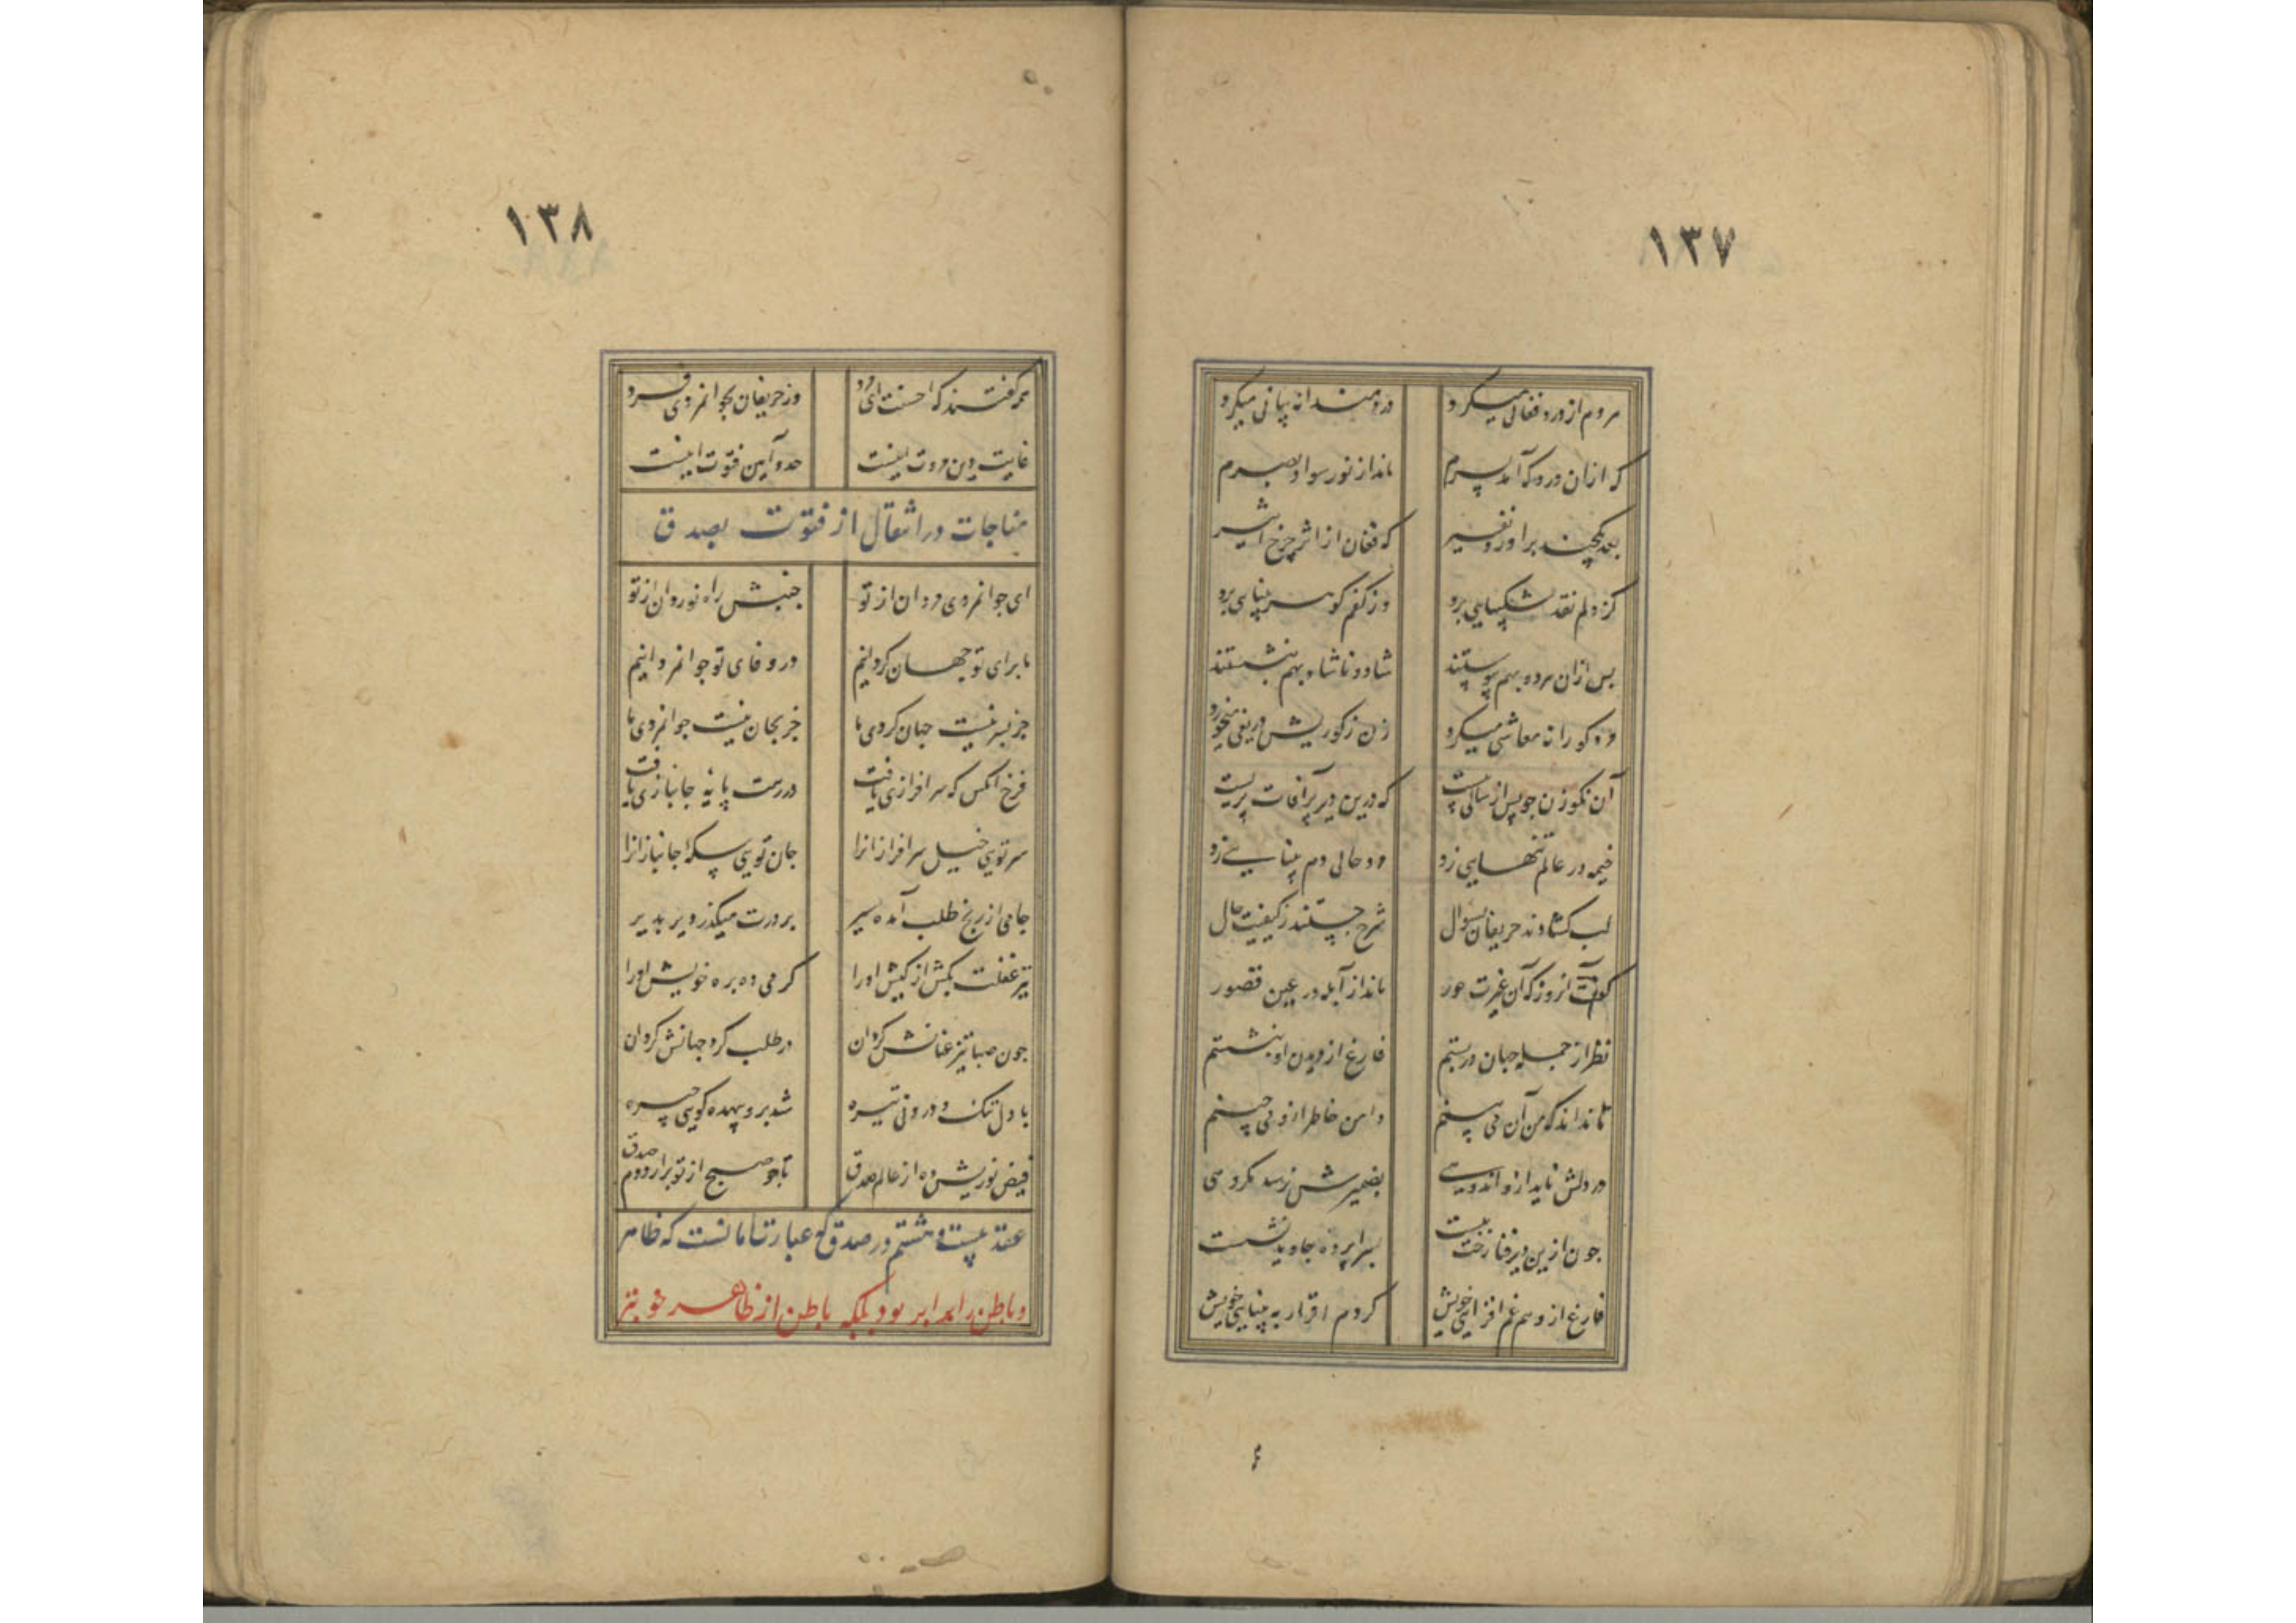 ١٣٧
مردم از درد فغانی میکرد دردمندانه بیانی میکرد
که ازان درد که آمد بسرم ماند از نور سواد بصرم
بعد یکچند براورد نفیر که فغان از اثر چرخ اثیر
کز دلم نقد شکیبایی برد وز کفم گوهر بینایی برد
بس ازان هر دو بهم پیوستند شاد و ناشاد بهم بنشستند
مرد کورانه معاشی میکرد زن ز کوریش دریغی میخورد
آن نکو زن چو پس از سالی بیست که درین دیر پر آفات بزیست
خیمه در عالم تنهایی زد مرد حالی دم بینایی زد
لب کشادند حریفان بسؤال شرح جستند ز کیفیت حال
گفت آنروز که آن غیرت حور ماند از آبله در عین قصور
نظر از جمله جهان در بستم فارغ از دیدن او بنشستم
تا نداند که من آن می بینم دامن خاطر ازو می چینم
در دلش ناید ازو اندوهی بضمیرش نرسد مکروهی
چون ازین دیر فنا رخت ببست بسراپرده جاوید نشست
فارغ از وهم غم افزایی خویش کردم اقرار به بینایی خویش
١٣٨
همه گفتند که احسنت ای مرد وز حریفان بجوانمردی فرد
غایت دین مروت اینست حد و آیین فتوت اینست
مناجات در انتقال از فتوت بصدق
ای جوانمردی مردان از تو جنبش راه نوردان از تو
ما برای تو جهان گردانیم در وفای تو جوانمردانیم
جز بسر نیست جهان گردی ما جز بجان نیست جوانمردی ما
فرخ آنکس که سرافرازی یافت در رهت پایه جانبازی یافت
سر تویی خیل سرافرازانرا جان تویی پیکر جانبازانرا
جامی از رنج طلب آمده سیر بر درت میگذرد دیر بدیر
تیر غفلت بکش از کیش اورا گرمی ده بره خویش اورا
چون صبا تیز عنانش گردان در طلب گرد جهانش گردان
با دل تنک و درونی تیره شد برو بیهده گویی چیره
فیض نوریش ده از عالم صدق تا چو صبح از تو برارد دم صدق
عقد بیست و هشتم در صدق که عبارت تا مانست که ظاهر
و باطن را برابر بود بلکه باطن از ظاهر خوبتر